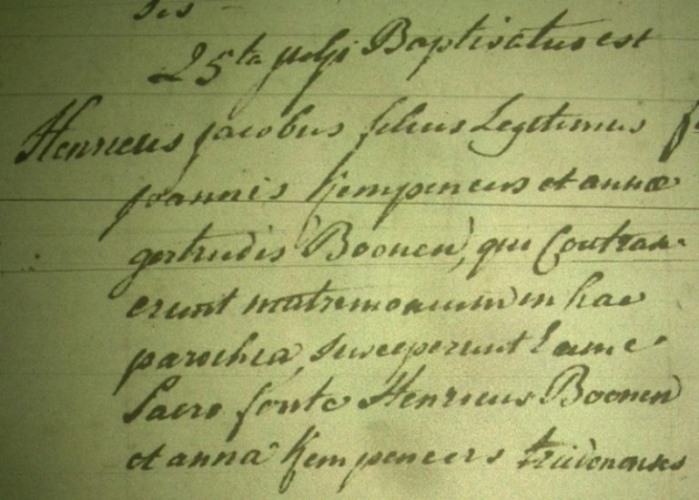 25ta julii Baptisatus est
Henricus jacobus filius Legitimus
joannis kempeneers et annæ
gertrudis Boonen, qui Contrax-
erunt matrimonium in hac
parochia, susceperunt eum e
Sacro fonte Henricus Boonen
et anna kempeneers trudonenses